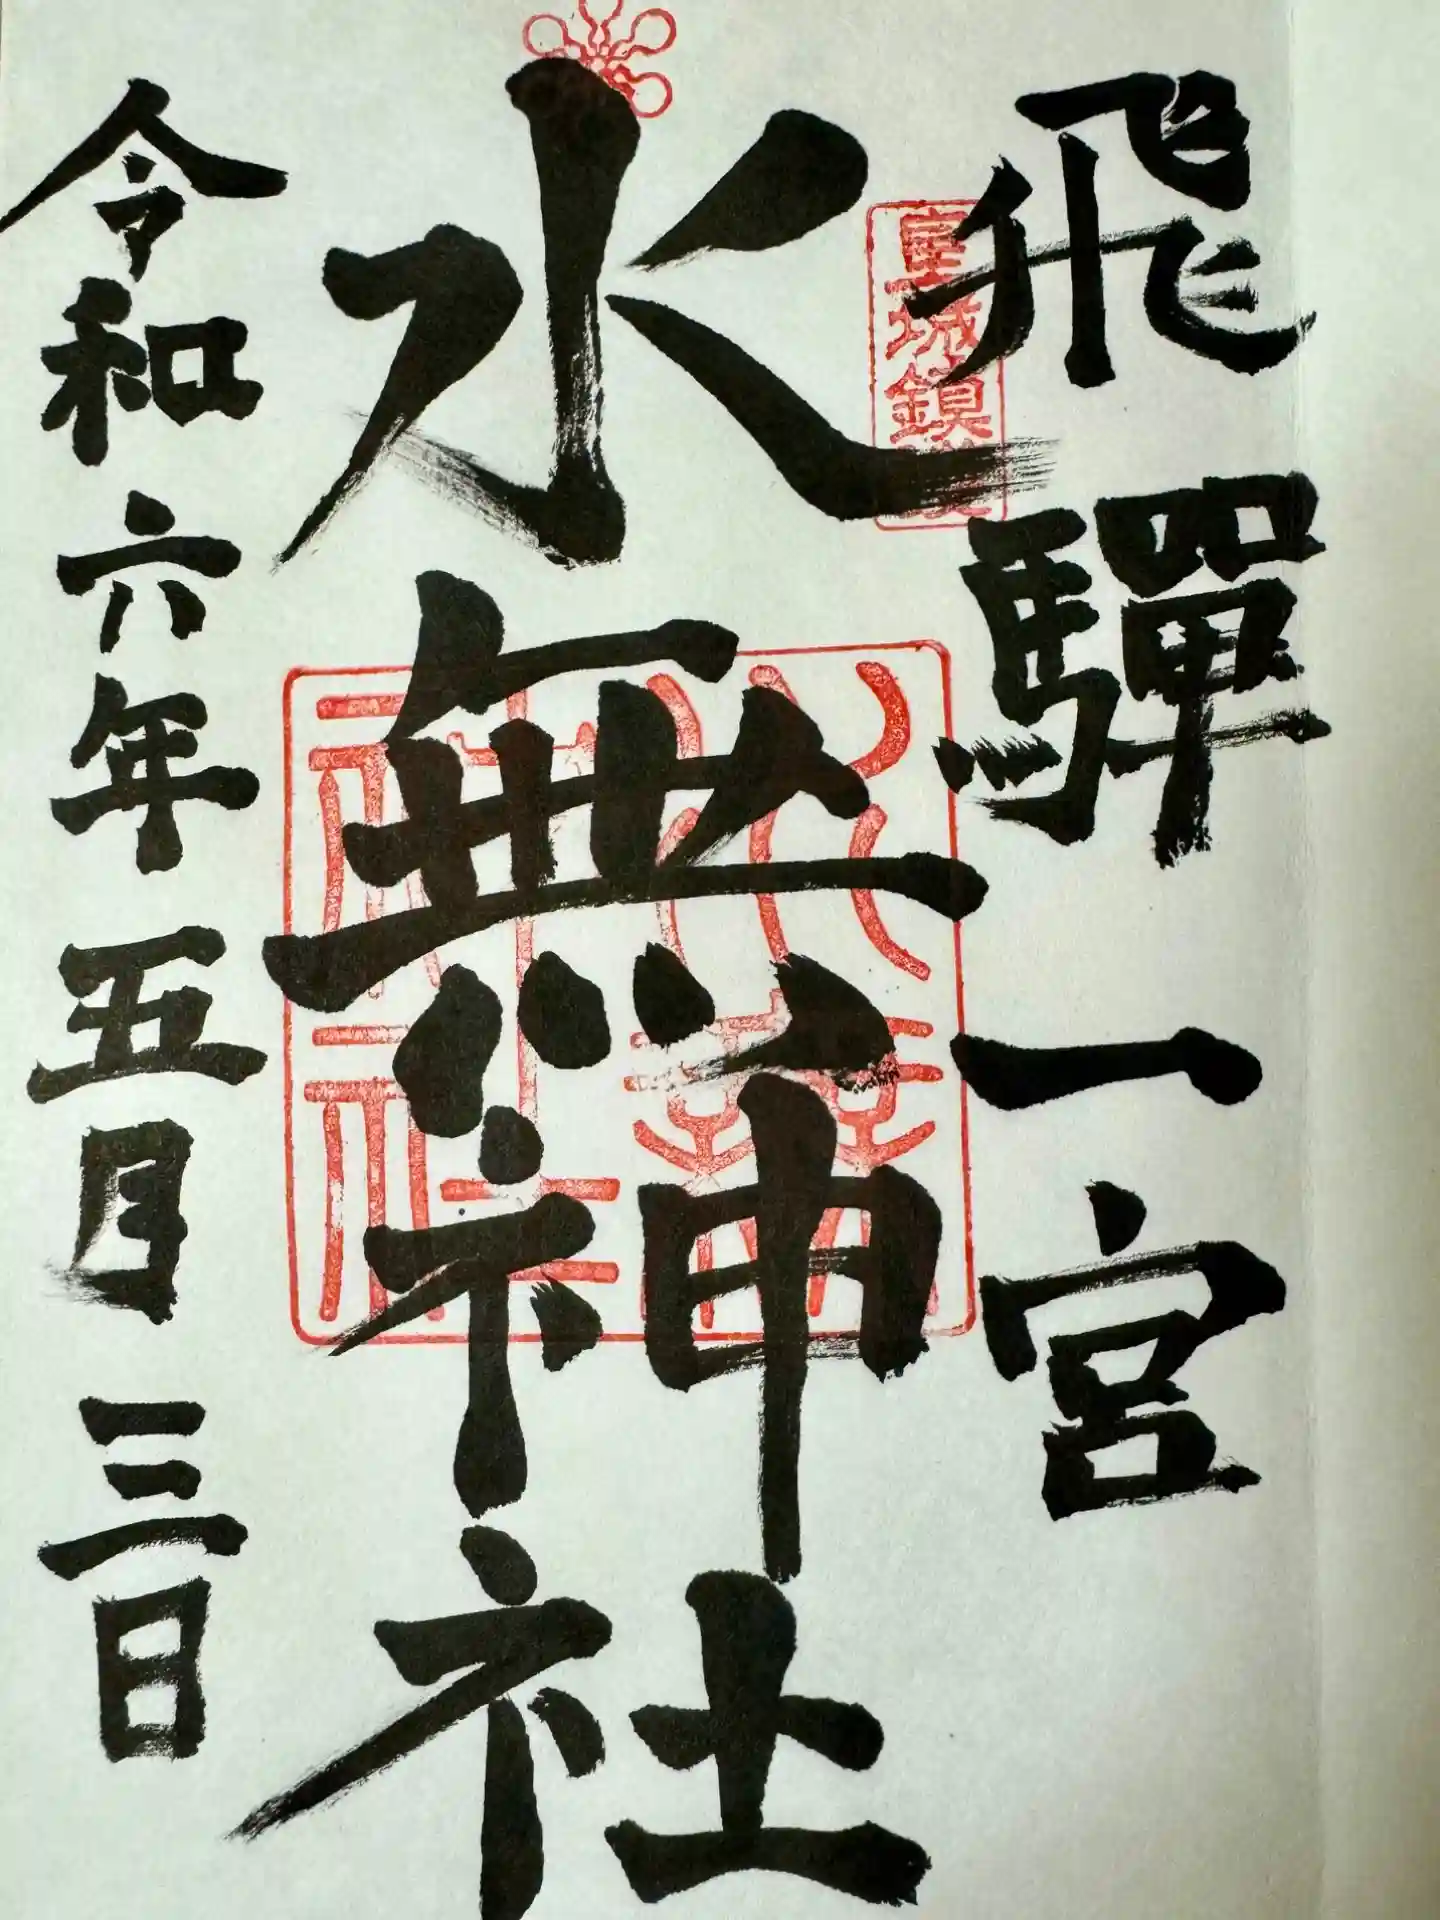 飛驒一宮
皇城鎮護
水無神社
水無神社
令和六年五月三日